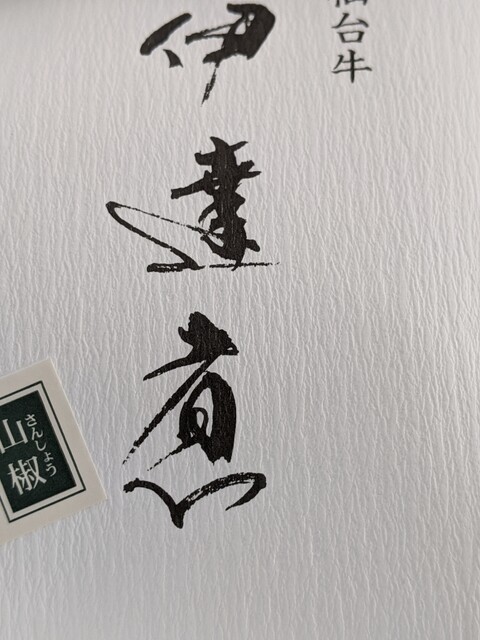 仙台牛
伊達煮
さんしょう
山椒